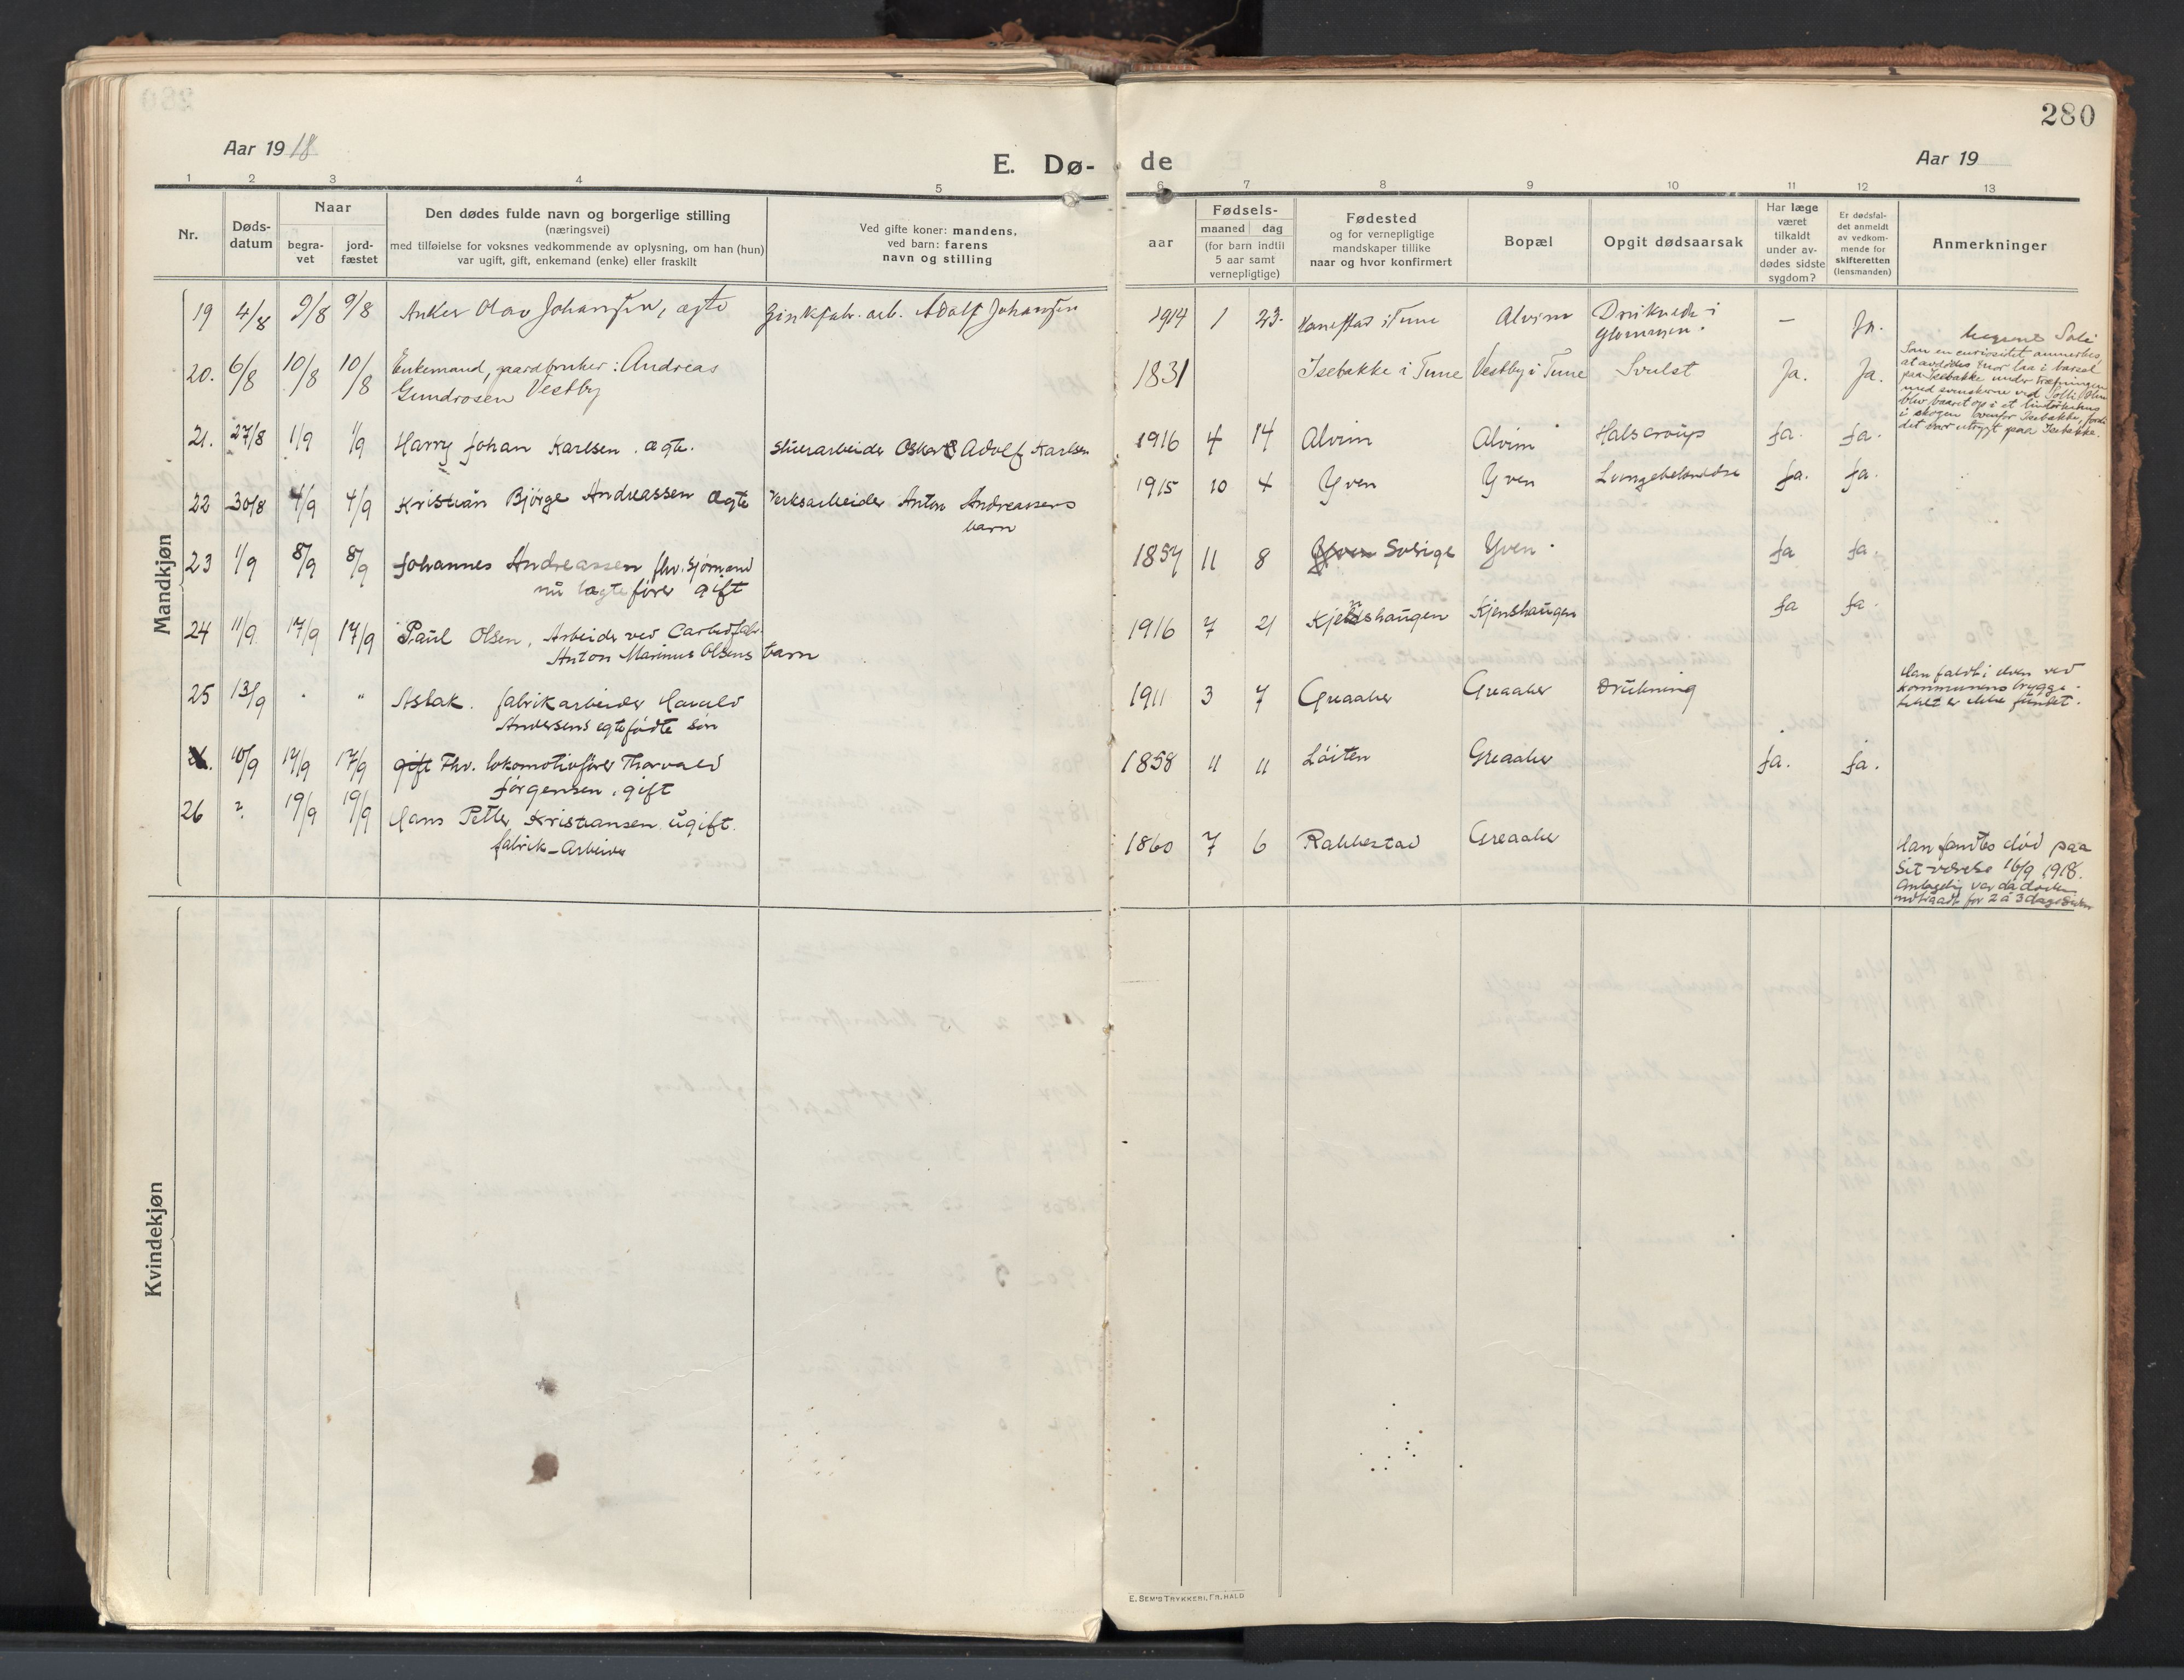 280
Aar 1918
E. Dø-
de
Aar 19
1 2 3 4 5 6 7 8 9 10 11 12 13
Nr.
Døds-
datum
Naar
begra-
vet
jord-
fæstet
Den dødes fulde navn og borgerlige stilling
(næringsvei)
med tilføielse for voksnes vedkommende av oplysning, om han (hun)
var ugift, gift, enkemand (enke) eller fraskilt
Ved gifte koner: mandens,
ved barn: farens
navn og stilling
aar
Fødsels-
maaned dag
(for barn indtil
5 aar samt
vernepligtige)
Fødested
og for vernepligtige
mandskaper tillike
naar og hvor konfirmert
Bopæl
Opgit dødsaarsak
Har læge
været
tilkaldt
under av-
dødes sidste
sygdom?
Er dødsfal-
det anmeldt
av vedkom-
mende for
skifteretten
(lensmanden)
Anmerkninger
Mandkjøn
19 4/8 9/8 9/8 Anker Olav Johansen, ægte Zinkfabr. arb. Adolf Johansen 1914 1 23. i Tune Alvim Druknede i — Ja.
Glommen.
20. 6/8 10/8 10/8 Enkemand, gaardbruker: Andreas 1831 Isebakke i Tune Vestby i Tune Svulst Ja. Ja.
Gundrosen Vestby
Som en curiositet anmerkes,
at avdødes mor laa i barsel
paa Isebakke under træfningen
med svenskerne ved
blev baaret op i et
i skogen ovenfor Isebakke, fordi
det var utrygt paa Isebakke.
21. 27/8 1/9 1/9 Harry Johan Karlsen. ægte. Stuerarbeider Oskar Adolf Karlsen 1916 4 14 Alvim Alvim Halscroup Ja. Ja.
22 30/8 4/9 4/9 Kristian Bjørge Andreassen ægte Verksarbeider Anton Andreassens 1915 10 4 Yven Yven Lungebetændelse Ja. Ja.
barn
23 1/9 8/9 8/9 Johannes Andreassen fhv. Sjømand 1857 11 8 Yven Sverige Yven Ja Ja
nu lægtefører gift
24 11/9 17/9 17/9 Paul Olsen, Arbeider ved Carbidfabr. 1916 7 21 Kjenshaugen Kjenshaugen Ja Ja.
Anton Marinus Olsens barn
25 13/9 . " Aslak. fabrikarbeider Harald 1911 3 7 Greaaker Greaaker Drukning
Andersens egtefødte søn
Han faldt i elven ved
kommunens brygge.
Liket er ikke fundet.
10/9 17/9 17/9 gift Fhv. lokomotivfører Thorvald 1858 11 11 Løiten Greaaker Ja. Ja.
Jørgensen, gift
26 ? 19/9 19/9 Hans Petter Kristiansen ugift. 1860 7 6 Rakkestad Greaaker
fabrik-Arbeider
Han fandtes død paa
sit værelse 16/9 1918.
Antagelig var da døden
indtraadt for 2 à 3 dage siden
Kvindekjøn
E. SEM'S TRYKKERI, FR. HALD